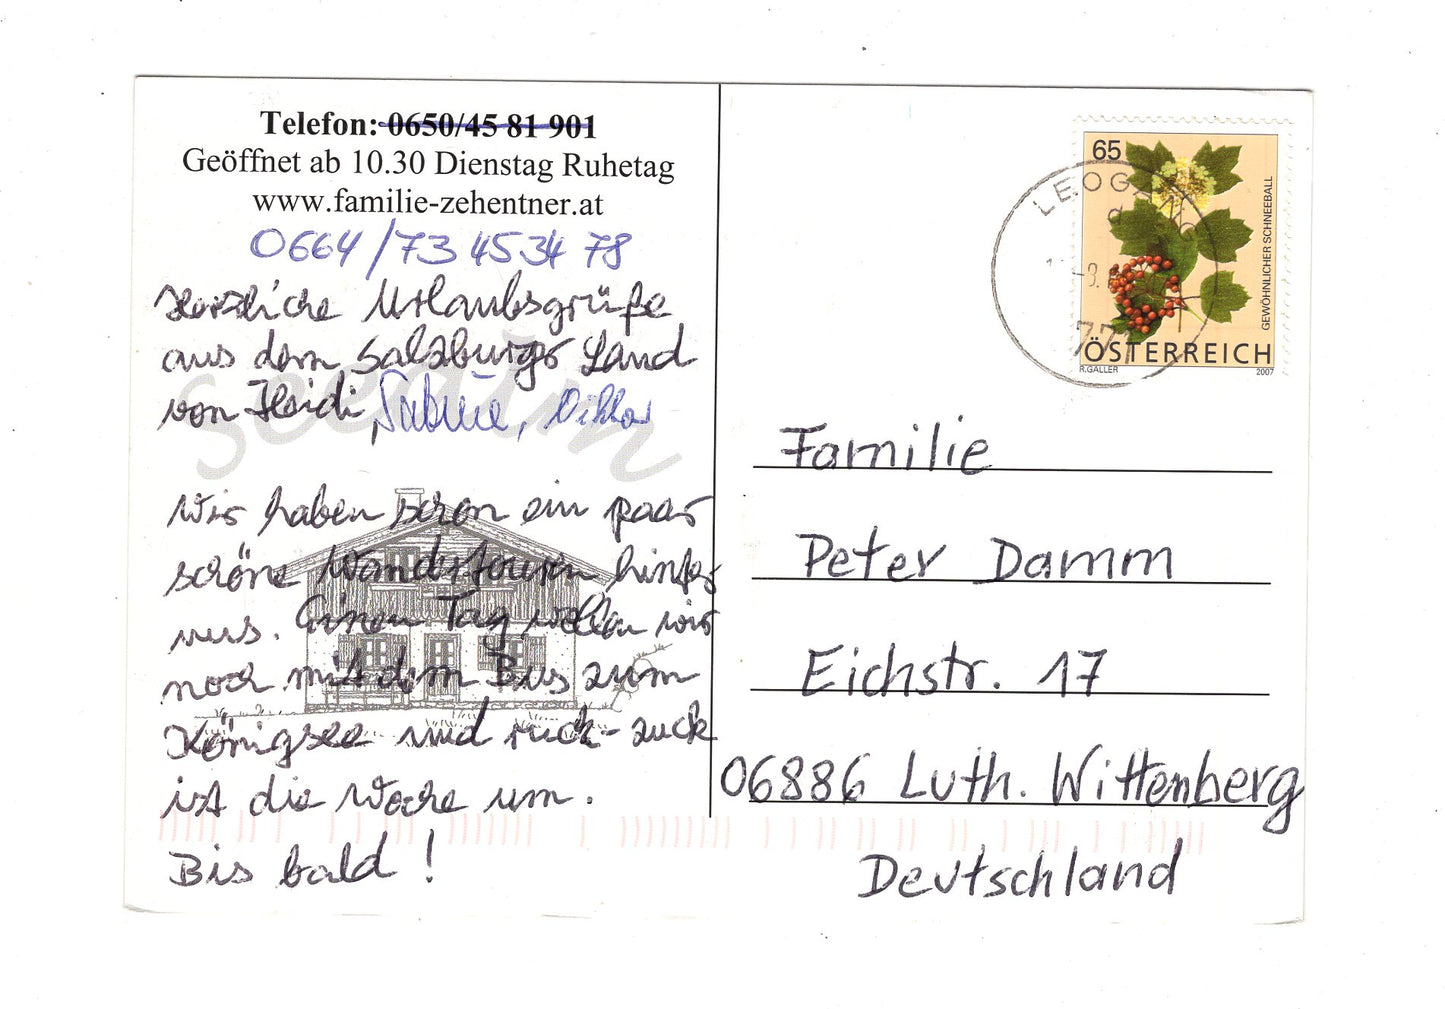 Telefon: 0650/45 81 901
Geöffnet ab 10.30 Dienstag Ruhetag
www.familie-zehentner.at
0664/73 45 34 78
Herzliche Urlaubsgrüße
aus dem Salzburger Land
von Heidi, Sabine, Viktor
seealm
Wir haben schon ein paar
schöne Wandertouren hinter
uns. Einen Tag wollen wir
noch mit dem Bus zum
Königsee und ruck-zuck
ist die Woche um.
Bis bald!
65
LEOG
GEWÖHNLICHER SCHNEEBALL
ÖSTERREICH
R.GALLER
2007
Familie
Peter Damm
Eichstr. 17
06886 Luth. Wittenberg
Deutschland